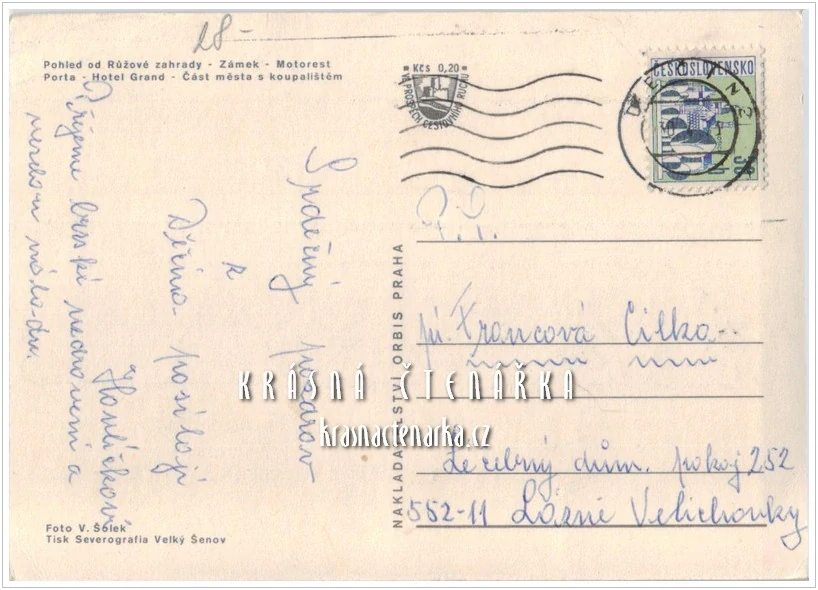 28 -
Pohled od Růžové zahrady - Zámek - Motorest
Porta - Hotel Grand - Část města s koupalištěm
Kčs 0,20
VE PROSPĚCH CESTOVNÍHO RUCHU
ČESKOSLOVENSKO
Srdečný pozdrav
z
Děčína posílají
Havlíčkovi
P. P.
pí. Francová Cilka
Léčebný dům. pokoj 252
552-11 Lázně Velichovky
NAKLADATELSTVÍ ORBIS PRAHA
KRÁSNÁ ČTENÁŘKA
krasnactenarka.cz
Foto V. Šolek
Tisk Severografia Velký Šenov